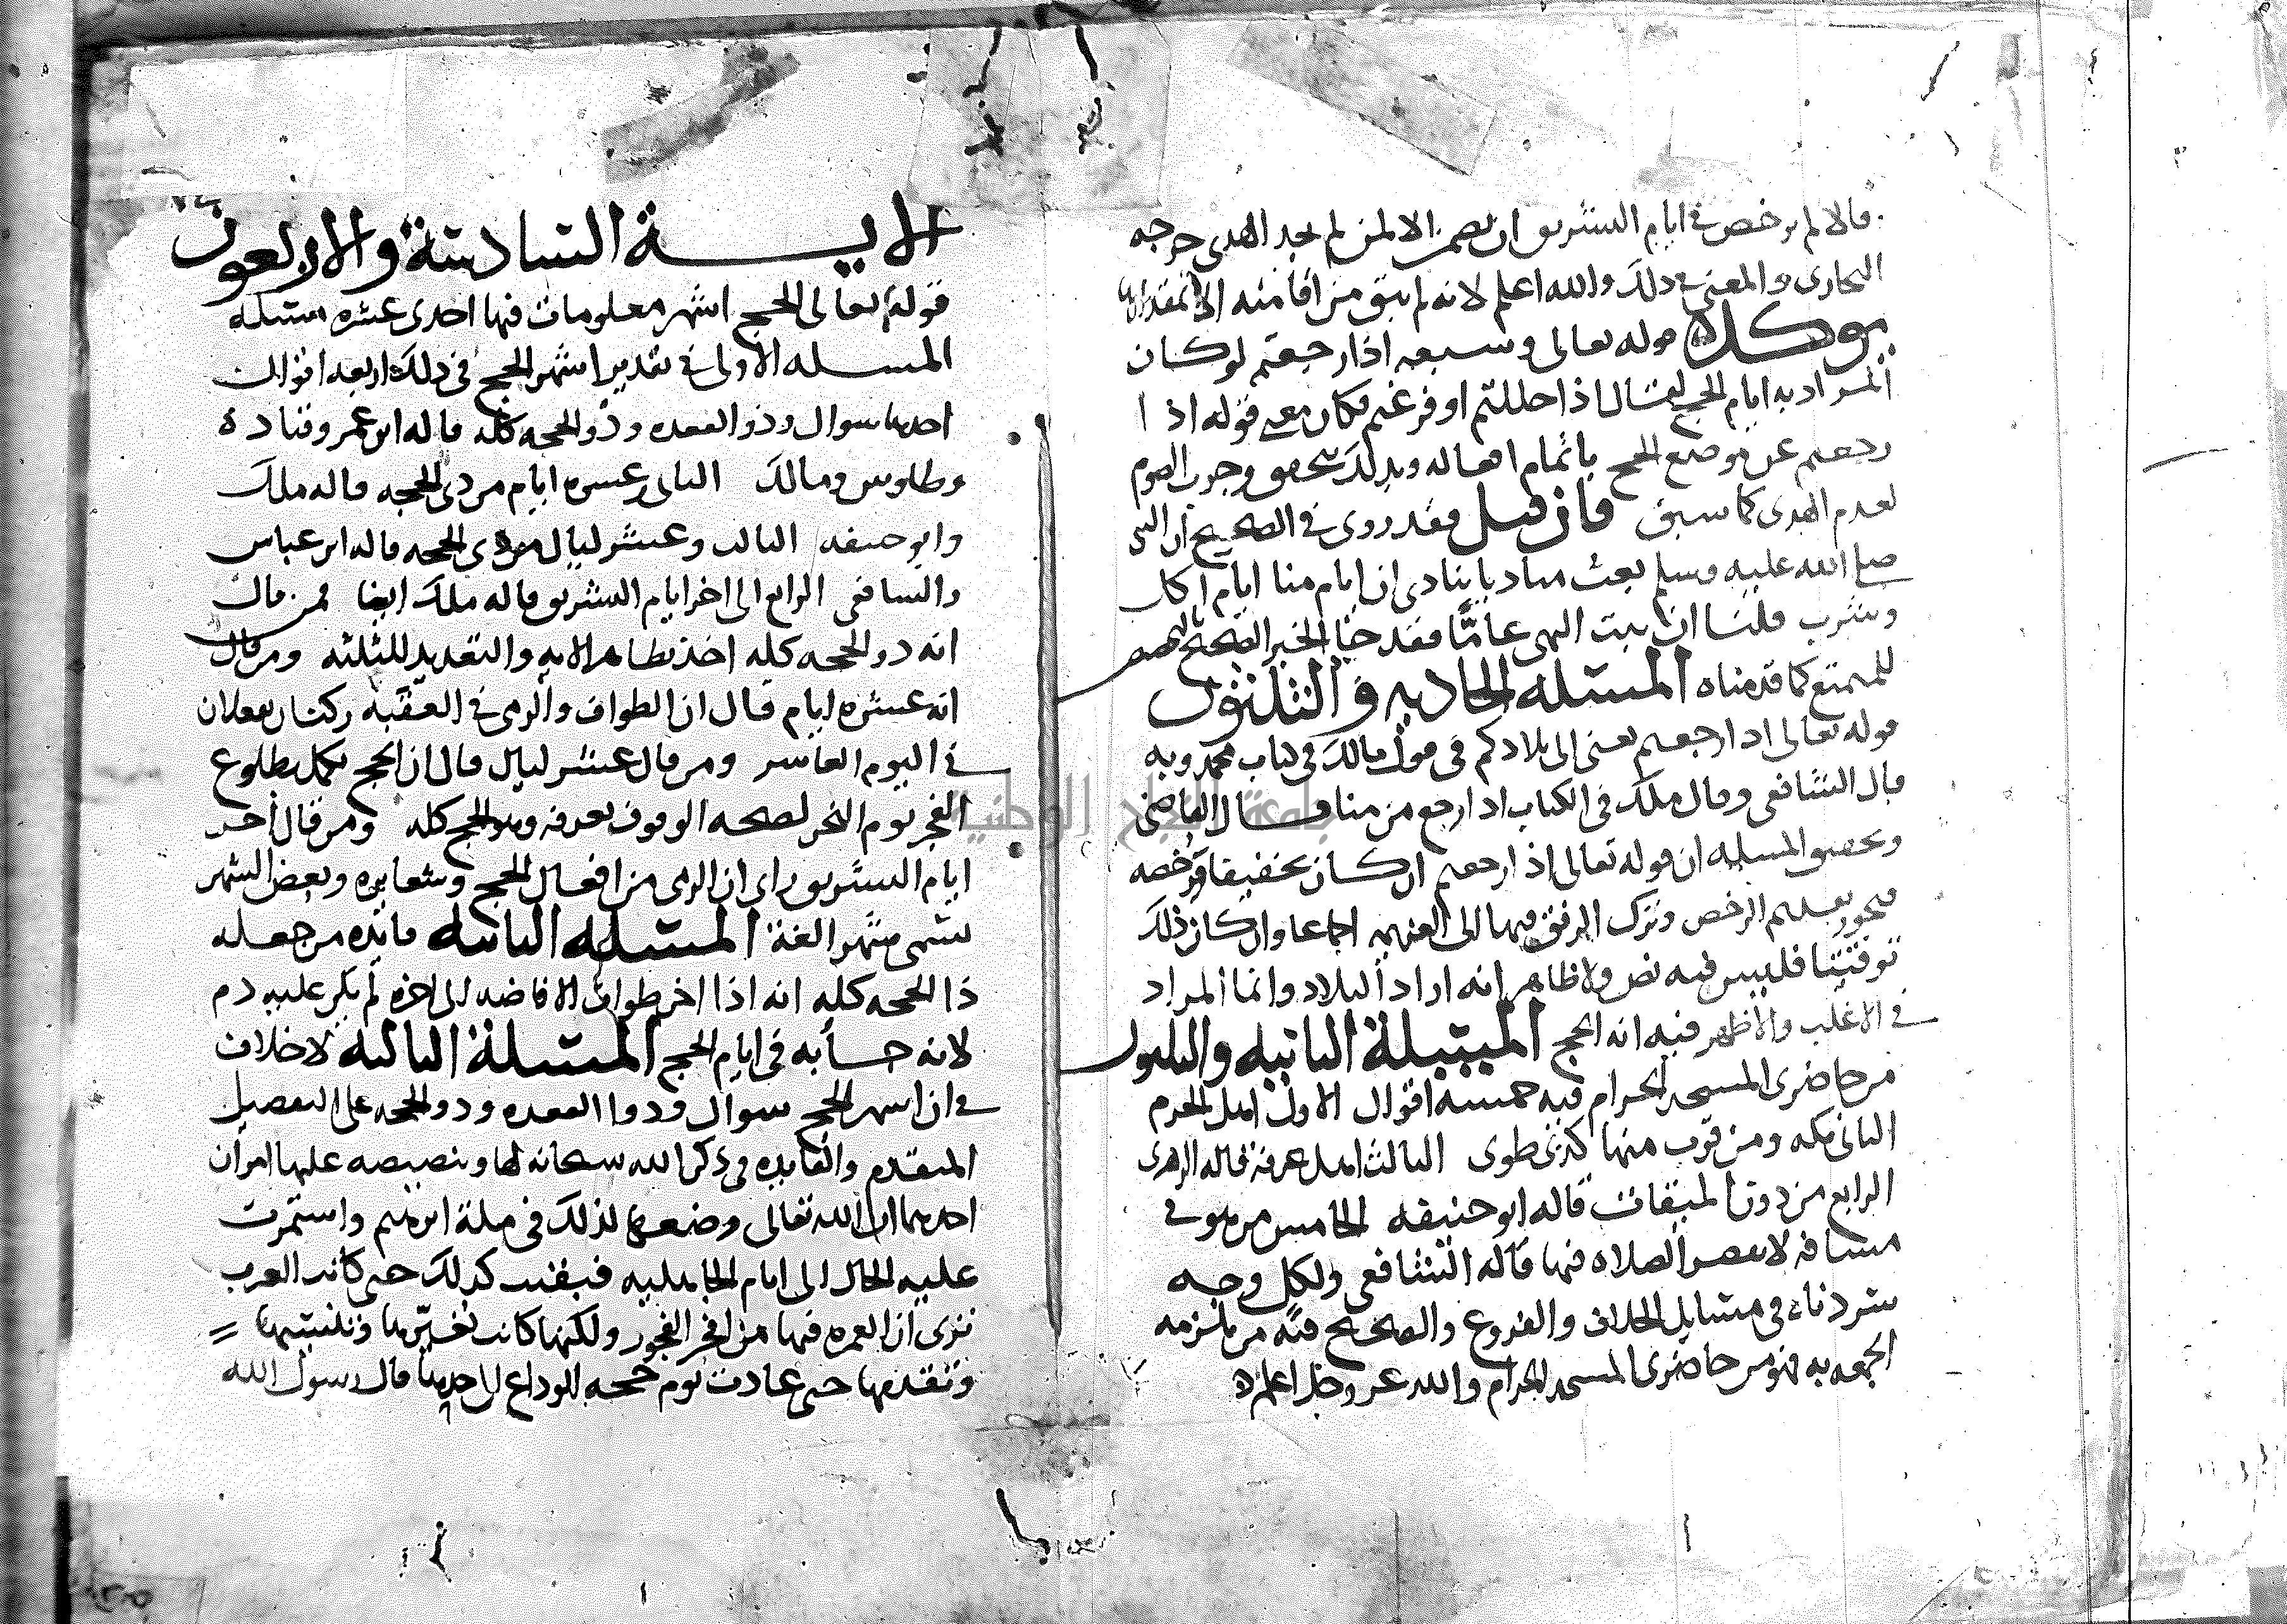 قالا لم يرخص في ايام التشريق ان يصمن الا لمن لم يجد الهدى خرجه
البخارى والمعنى في ذلك والله اعلم لانه لم يبق من اقامته الا بمقدارها
يوكده قوله تعالى وسبعه اذا رجعتم لو كان
المراد به ايام الحج لقال اذا حللتم او فرغتم فكان معنى قوله اذا
رجعتم عن موضع الحج باتمام افعاله وبذلك يتحقق وجوب الصوم
لعدم الهدى كما سبق فان قيل فقد روى في الصحيح ان النبى
صلى الله عليه وسلم بعث مناديا ينادى ان ايام منا ايام اكل
وشرب قلنا ان ثبت النهى عاما فقد جا الخبر الصحيح بالتخصيص
للمتمتع كما قدمناه المسئله الحاديه والثلثون
قوله تعالى اذا رجعتم يعنى الى بلادكم في قول مالك في كتاب محمد وبه
قال الشافعى وقال ملك في الكتاب اذا رجع من منا قال القاضى
وتحقيق المسله ان قوله تعالى اذا رجعتم ان كان تخفيفا ورخصه
فيجوز تقديم الرخص وترك الرفق فيها الى العزيمه اجماعا وان كان ذلك
توقيتا فليس فيه نص ولا ظاهر انه اراد البلاد وانما المراد
في الاغلب والاظهر فيه انه الحج المسئلة الثانيه والثلثون
من حاضرى المسجد الحرام فيه خمسه اقوال الاول اهل الحرم
الثانى مكه ومن قرب منها كذى طوى الثالث اهل عرفة قاله الزهرى
الرابع من دون الميقات قاله ابو حنيفه الخامس من هو في
مسافه لا تقصر الصلاه فيها قاله الشافعى ولكل وجه
سردناه في مسايل الخلاف والفروع والصحيح فيه من تلزمه
الجمعه به فهو من حاضرى المسجد الحرام والله عز وجل اعلم
الاية السادسة والاربعون
قوله تعالى الحج اشهر معلومات فيها احدى عشره مسئله
المسله الاولى في تقدير اشهر الحج في ذلك اربعه اقوال
احدها شوال وذو القعده وذو الحجه كله قاله ابن عمر وقتادة
وطاوس ومالك الثانى وعشره ايام من ذى الحجه قاله ملك
وابو حنيفه الثالث وعشر ليال من ذى الحجه قاله ابن عباس
والشافعى الرابع الى اخر ايام التشريق قاله ملك ايضا فمن قال
انه ذو الحجه كله اخذ بظاهر الايه والتعديد للثلثه ومن قال
انه عشره ايام قال ان الطواف والرمى في العقبة ركنان يفعلان
في اليوم العاشر ومن قال عشر ليال قال ان الحج يكمل بطلوع
الفجر يوم النحر لصحه الوقوف بعرفه وهو الحج كله ومن قال اخر
ايام التشريق راى ان الرمى من افعال الحج وشعايره وبعض الشهر
يسمى شهرا لغة المسئله الثانيه فايده من جعله
ذا الحجه كله انه اذا اخر طواف الافاضه الى اخره لم يكن عليه دم
لانه جا به في ايام الحج المسئلة الثالثه لا خلاف
في ان اشهر الحج شوال وذوا القعده وذو الحجه على التفصيل
المتقدم والفايده في ذكر الله سبحانه لها وتنصيصه عليها امران
احدهما ان الله تعالى وضعها لذلك في ملة ابرهيم واستمرت
عليه الحال الى ايام الجاهليه فبقيت كذلك حتى كانت العرب
ترى ان العمره فيها من افجر الفجور ولكنها كانت تغيرها وتنسيها
وتقدمها حتى عادت يوم حجه الوداع الى حدها قال رسول الله
جامعة النجاح الوطنية